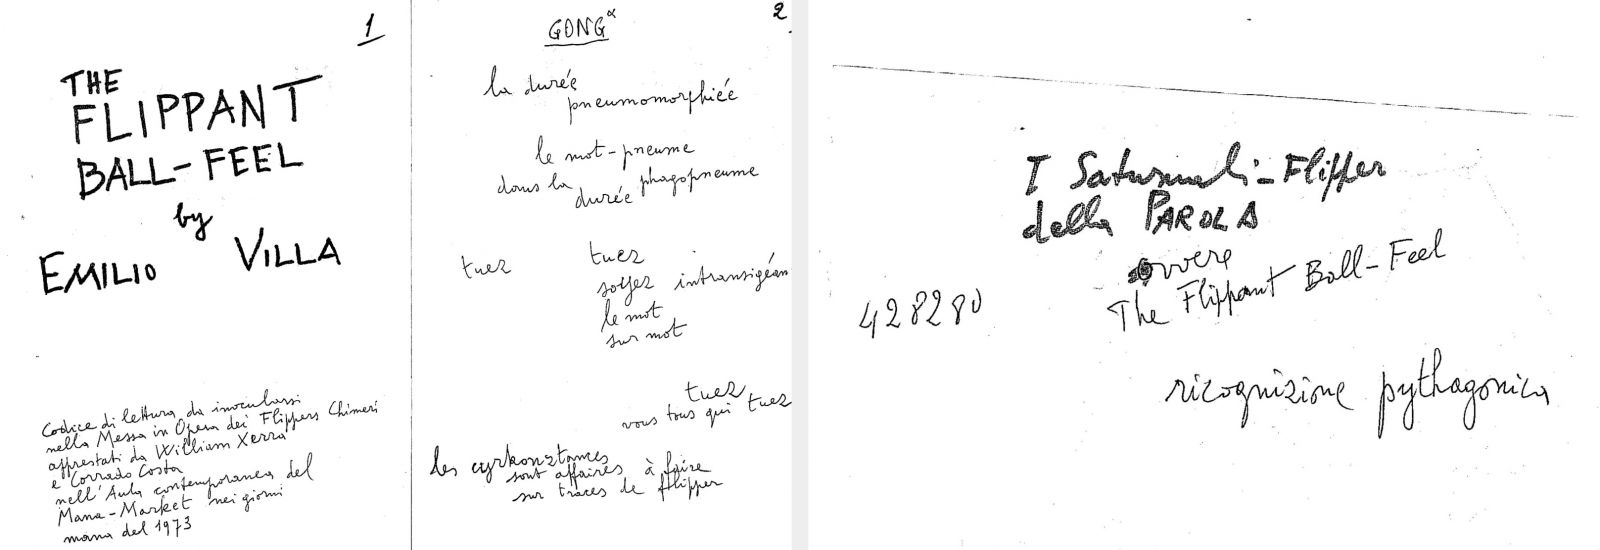 1
THE
FLIPPANT
BALL-FEEL
by
EMILIO VILLA
Codice di lettura da inocularsi
nella Messa in Opera dei Flippers Chimeri
apprestati da William Xerra
e Corrado Costa
nell'Aula contemporanea del
Mana-Market nei giorni
mana del 1973
2
GONG α
la durée
pneumomorphiée
le mot-pneume
dans la durée phagopneume
tuez tuez
soyez intransigean
le mot
sur mot
tuez
vous tous qui tuez
les cyrkonztances
sont affaires à faire
sur traces de flipper
I Saturnali-Flipper
della PAROLA
ovvere
The Flippant Ball-Feel
428280
ricognizione pythagonica